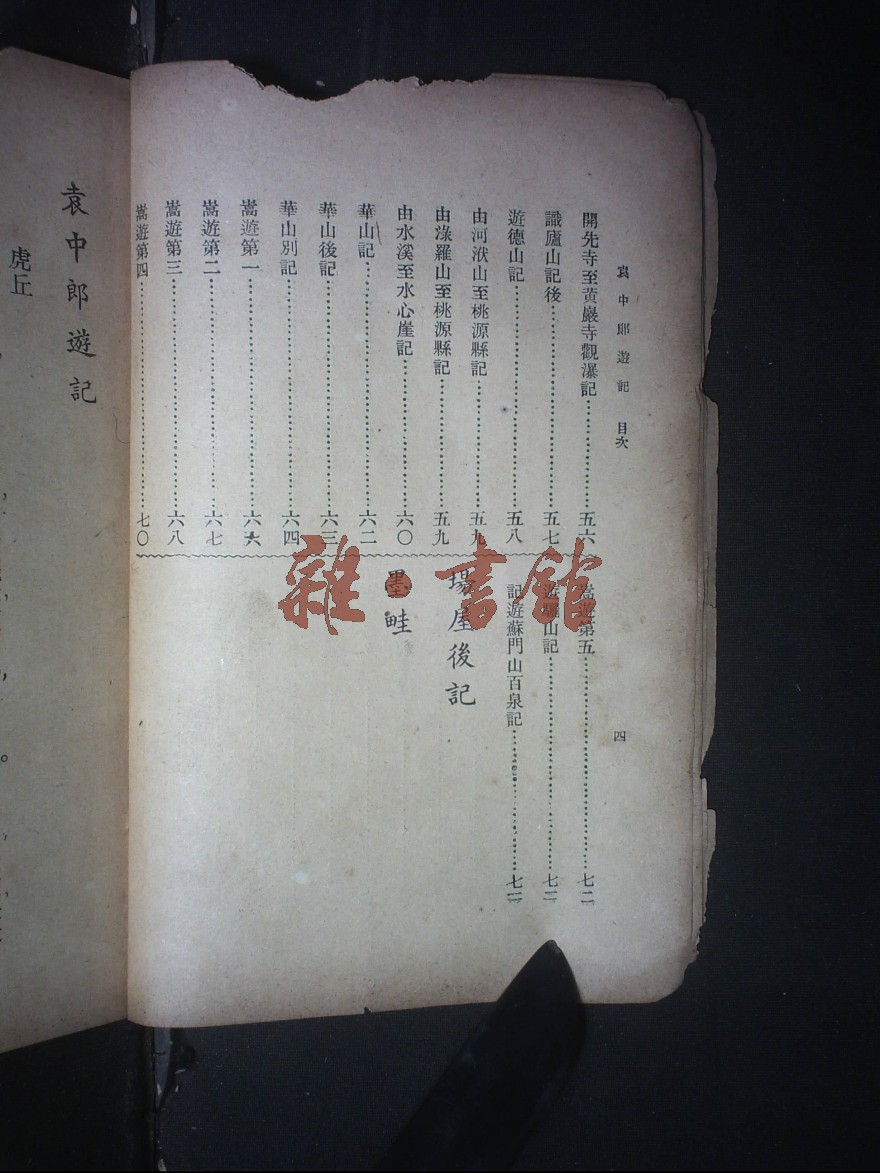 袁中郎遊記　目次
四
開先寺至黃巖寺觀瀑記……五六
識廬山記後……五七
遊德山記……五八
由河洑山至桃源縣記……五九
由淥羅山至桃源縣記……五九
由水溪至水心崖記……六〇
華山記……六二
華山後記……六三
華山別記……六四
嵩遊第一……六六
嵩遊第二……六七
嵩遊第三……六八
嵩遊第四……七〇
嵩遊第五……七二
遊驪山記……七三
記遊蘇門山百泉記……七三
場屋後記
墨畦
袁中郎遊記
虎丘
雜·書館